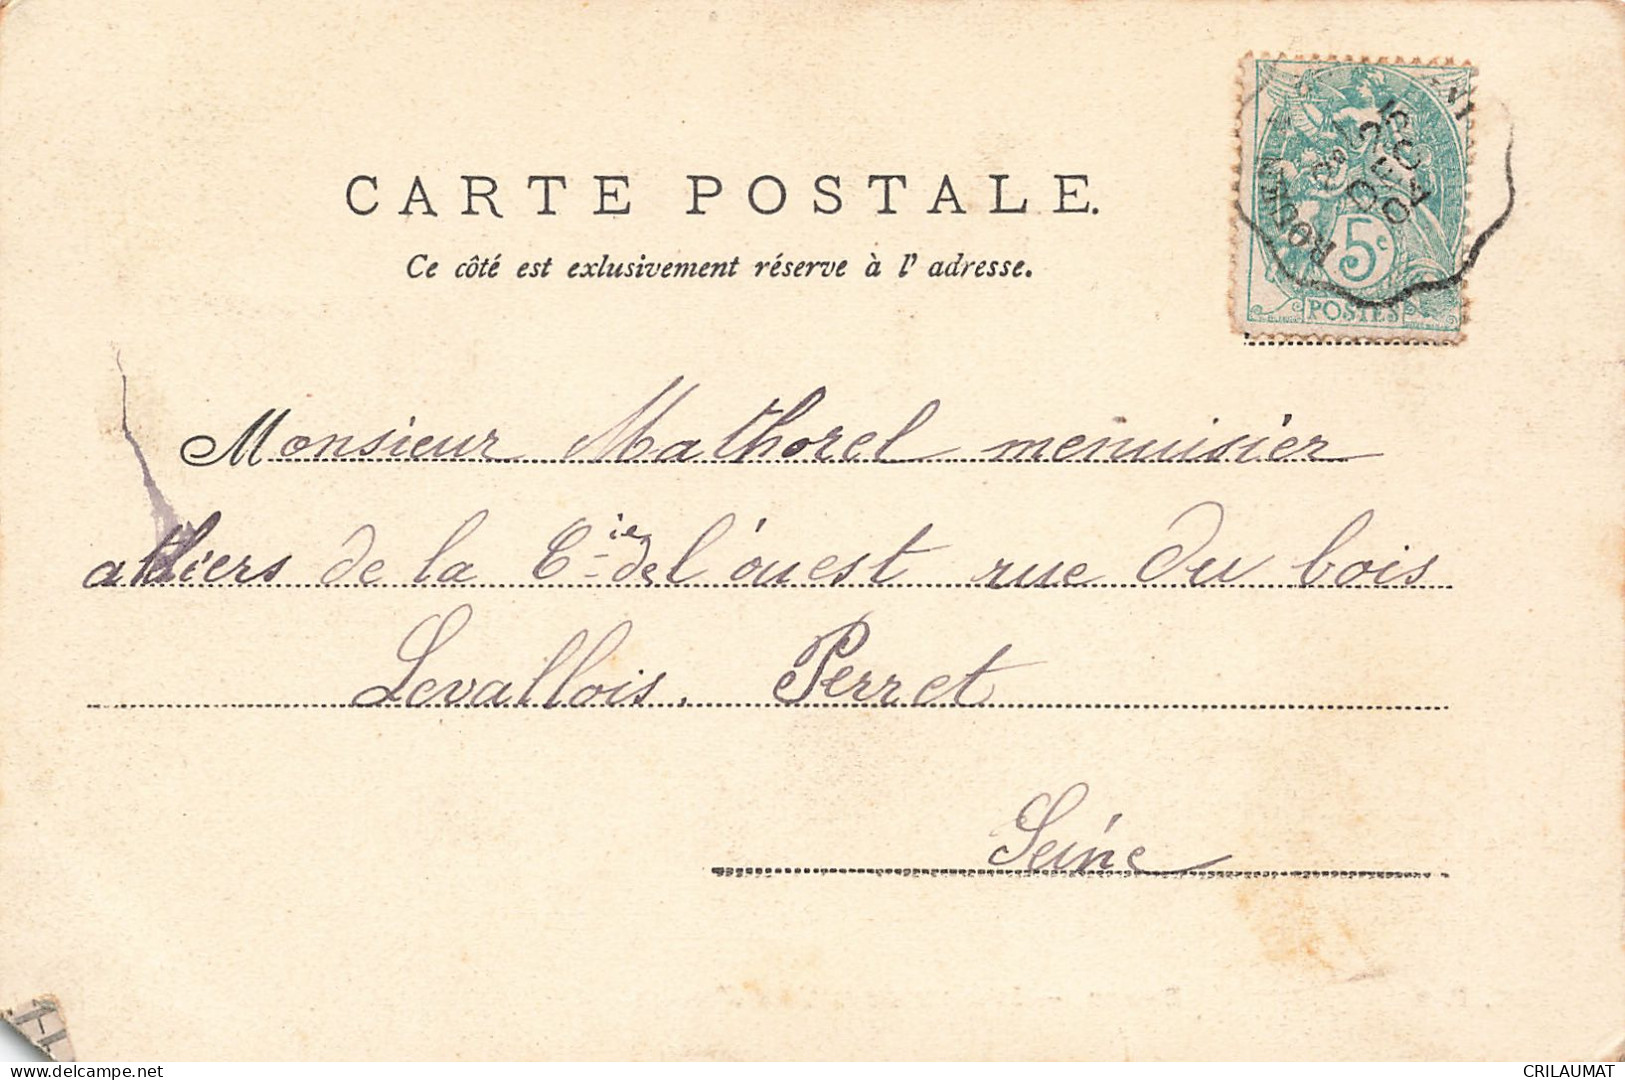 CARTE POSTALE.
Ce côté est exlusivement réserve à l' adresse.
25
DEC
04
5c
POSTES
Monsieur Mathorel menuisier
atliers de la Cie de l'ouest rue du bois
Levallois. Perret
Seine
delcampe.net
CRILAUMAT